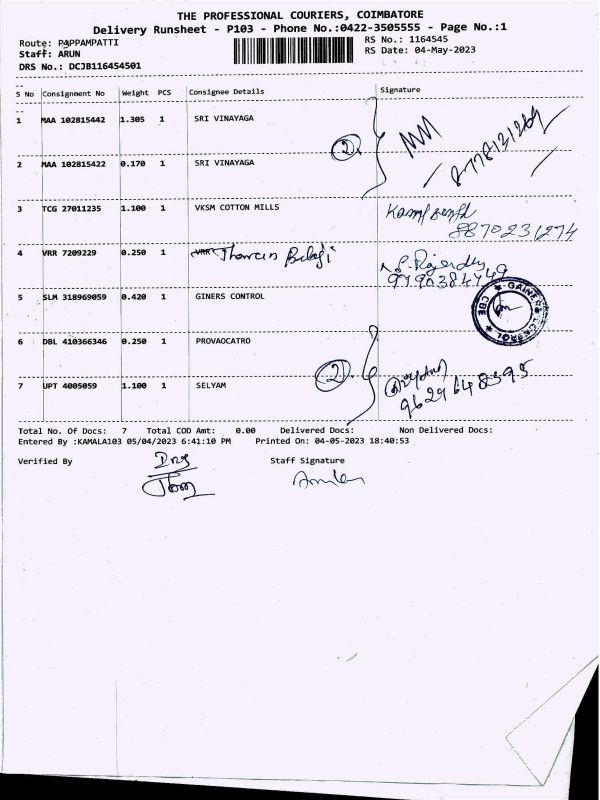 THE PROFESSIONAL COURIERS, COIMBATORE
Delivery Runsheet - P103 - Phone No.:0422-3505555 - Page No.:1
Route: PAPPAMPATTI
RS No.: 1164545
Staff: ARUN
RS Date: 04-May-2023
DRS No.: DCJB116454501
S No Consignment No Weight PCS Consignee Details Signature
1 MAA 102815442 1.305 1 SRI VINAYAGA
2
2 MAA 102815422 0.170 1 SRI VINAYAGA
3 TCG 27011235 1.100 1 VKSM COTTON MILLS
8870231274
4 VRR 7209229 0.250 1 VRR
9790384749
5 SLM 318969059 0.420 1 GINERS CONTROL
6 DBL 410366346 0.250 1 PROVAOCATRO
2
7 UPT 4005059 1.100 1 SELYAM
9629648395
Total No. Of Docs: 7 Total COD Amt: 0.00 Delivered Docs: Non Delivered Docs:
Entered By :KAMALA103 05/04/2023 6:41:10 PM Printed On: 04-05-2023 18:40:53
Verified By Staff Signature